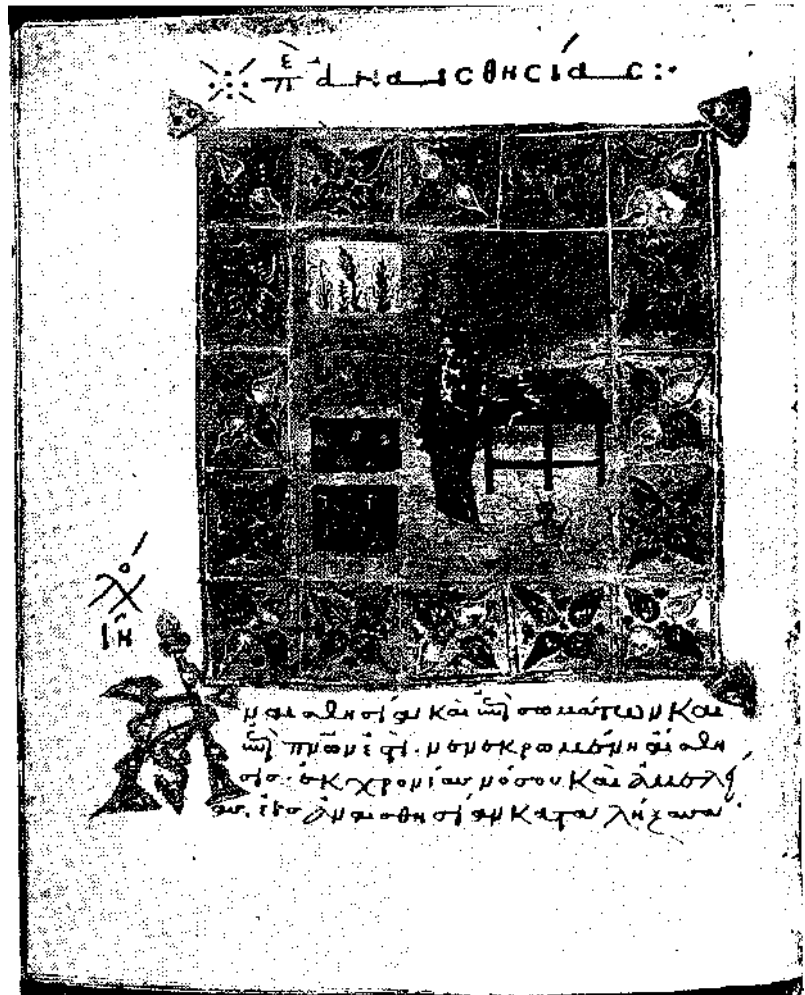 πε ἀναισθησίας :·
λό
ιη
Ἀναισθησία καὶ ἐπὶ σωμάτων καὶ
ἐπὶ πνῶν ἐστὶ· νενεκρωμένη αἴσθη
σις· ἐκ χρονίας νόσου καὶ ἀμελεί
ας, εἰς ἀναισθησίαν καταλήξασα·